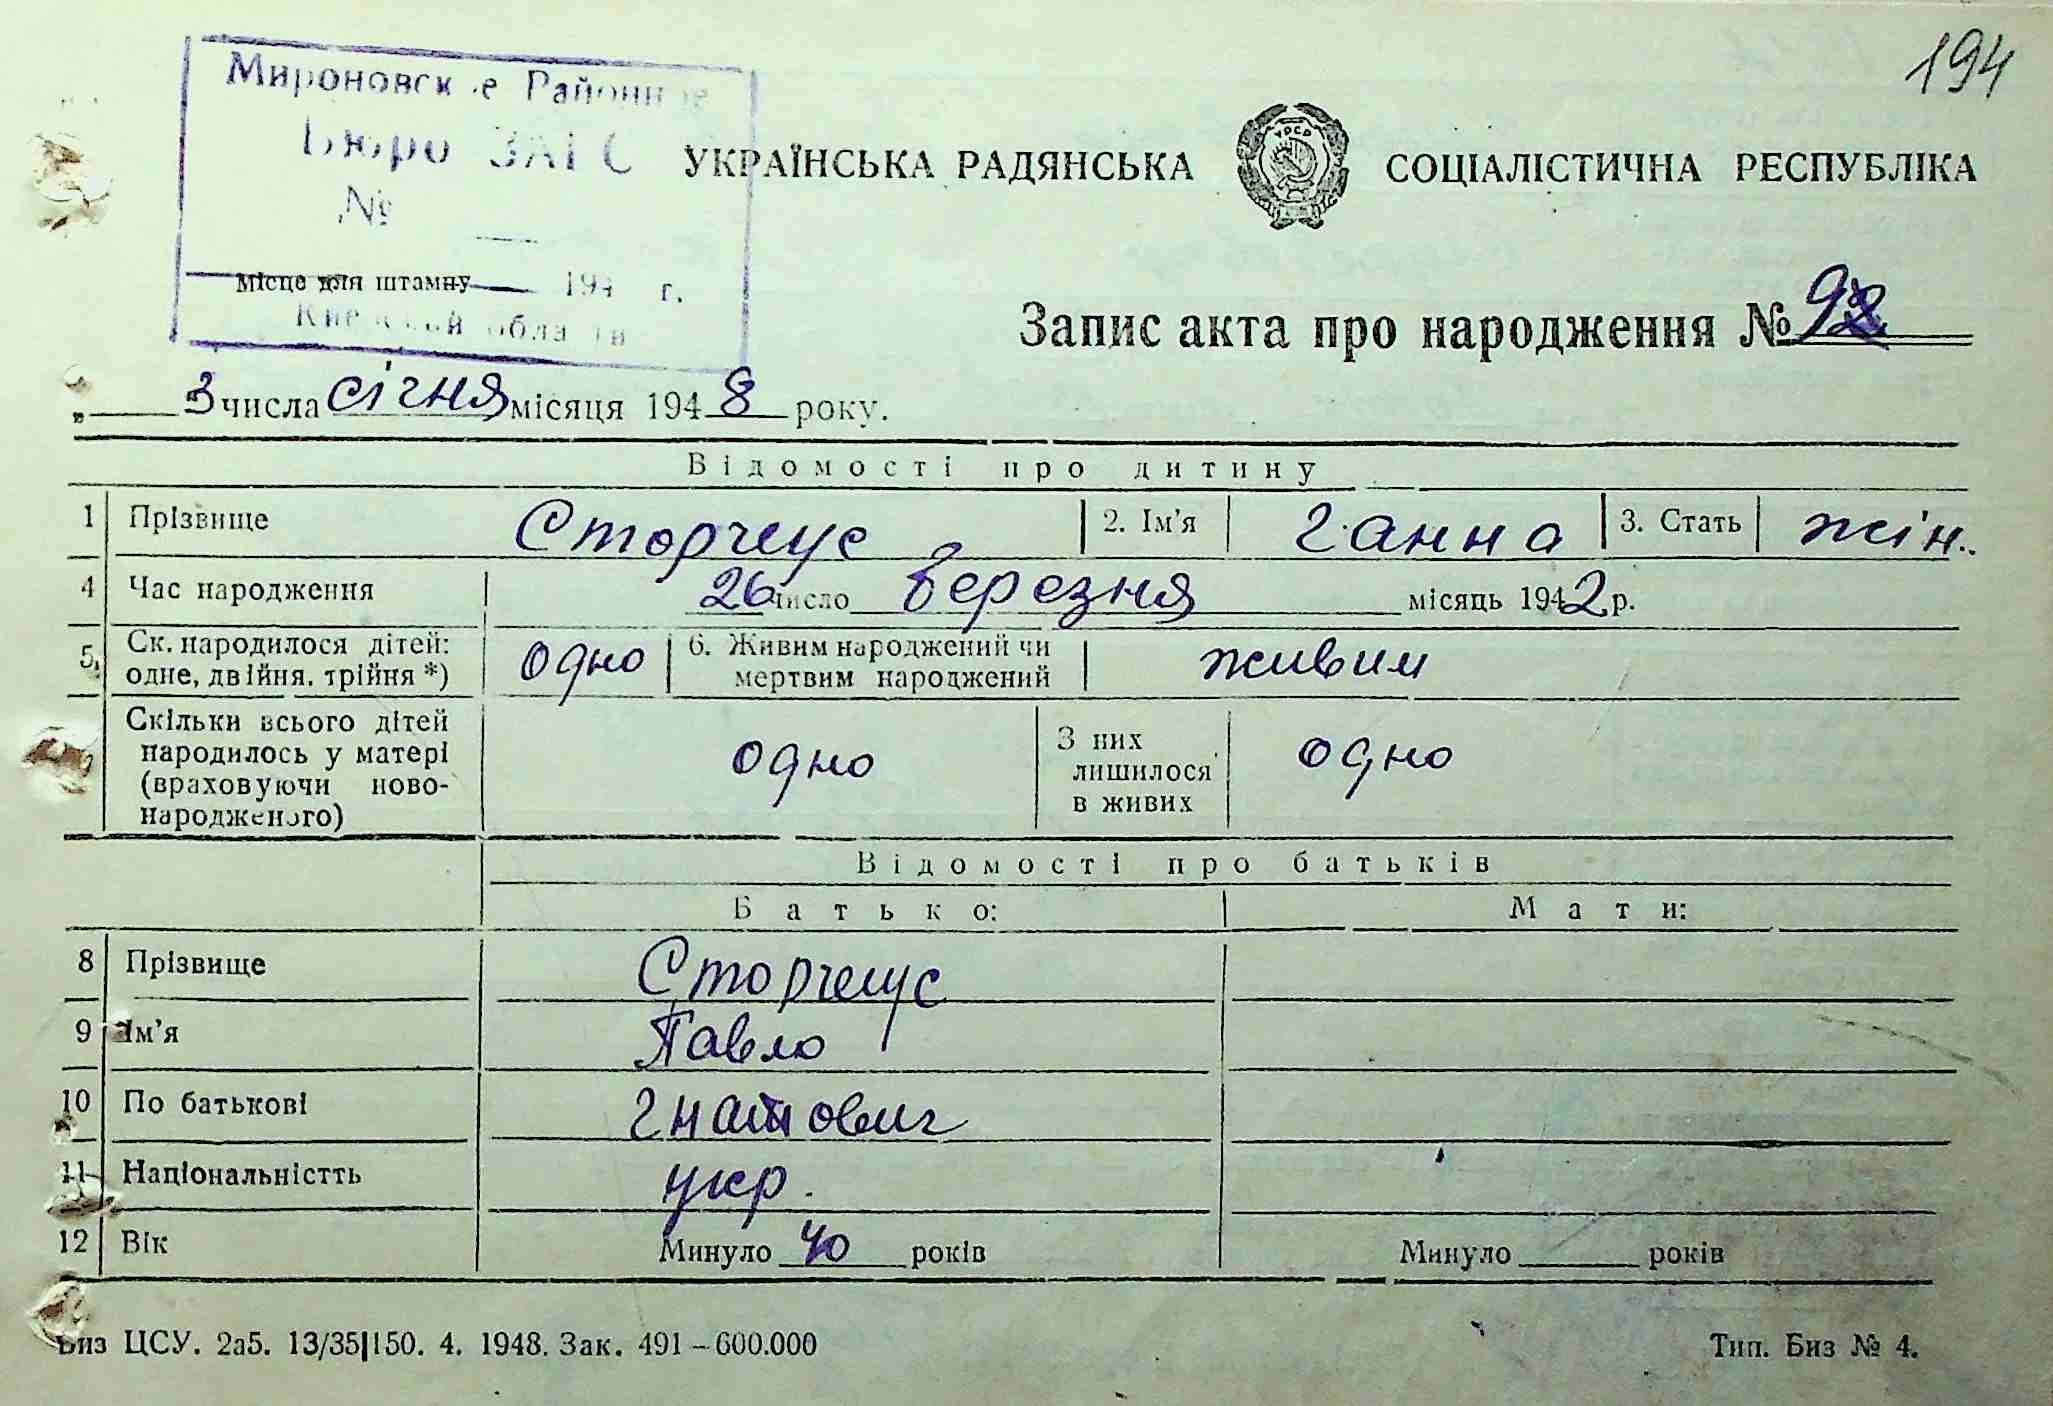 194
Мироновск е Районн е
Бюро ЗАГС
УКРАЇНСЬКА РАДЯНСЬКА СОЦІАЛІСТИЧНА РЕСПУБЛІКА
№
Місце для штампу 194 г.
Запис акта про народження № 92
„ 3 числа січня місяця 1948 року.
Відомості про дитину
1 Прізвище Сторчеус 2. Ім'я Ганна 3. Стать жін.
4 Час народження 26 число березня місяць 1942 р.
5. Ск. народилося дітей: одно 6. Живим народжений чи живим
одне, двійня, трійня *) мертвим народжений
Скільки всього дітей
народилось у матері одно З них одно
(враховуючи ново- лишилося
народженого) в живих
Відомості про батьків
Батько: Мати:
8 Прізвище Сторчеус
9 Ім'я Павло
10 По батькові Гнатович
11 Національністть укр.
12 Вік Минуло 40 років Минуло років
Биз ЦСУ. 2а5. 13/35|150. 4. 1948. Зак. 491 – 600.000 Тип. Биз № 4.